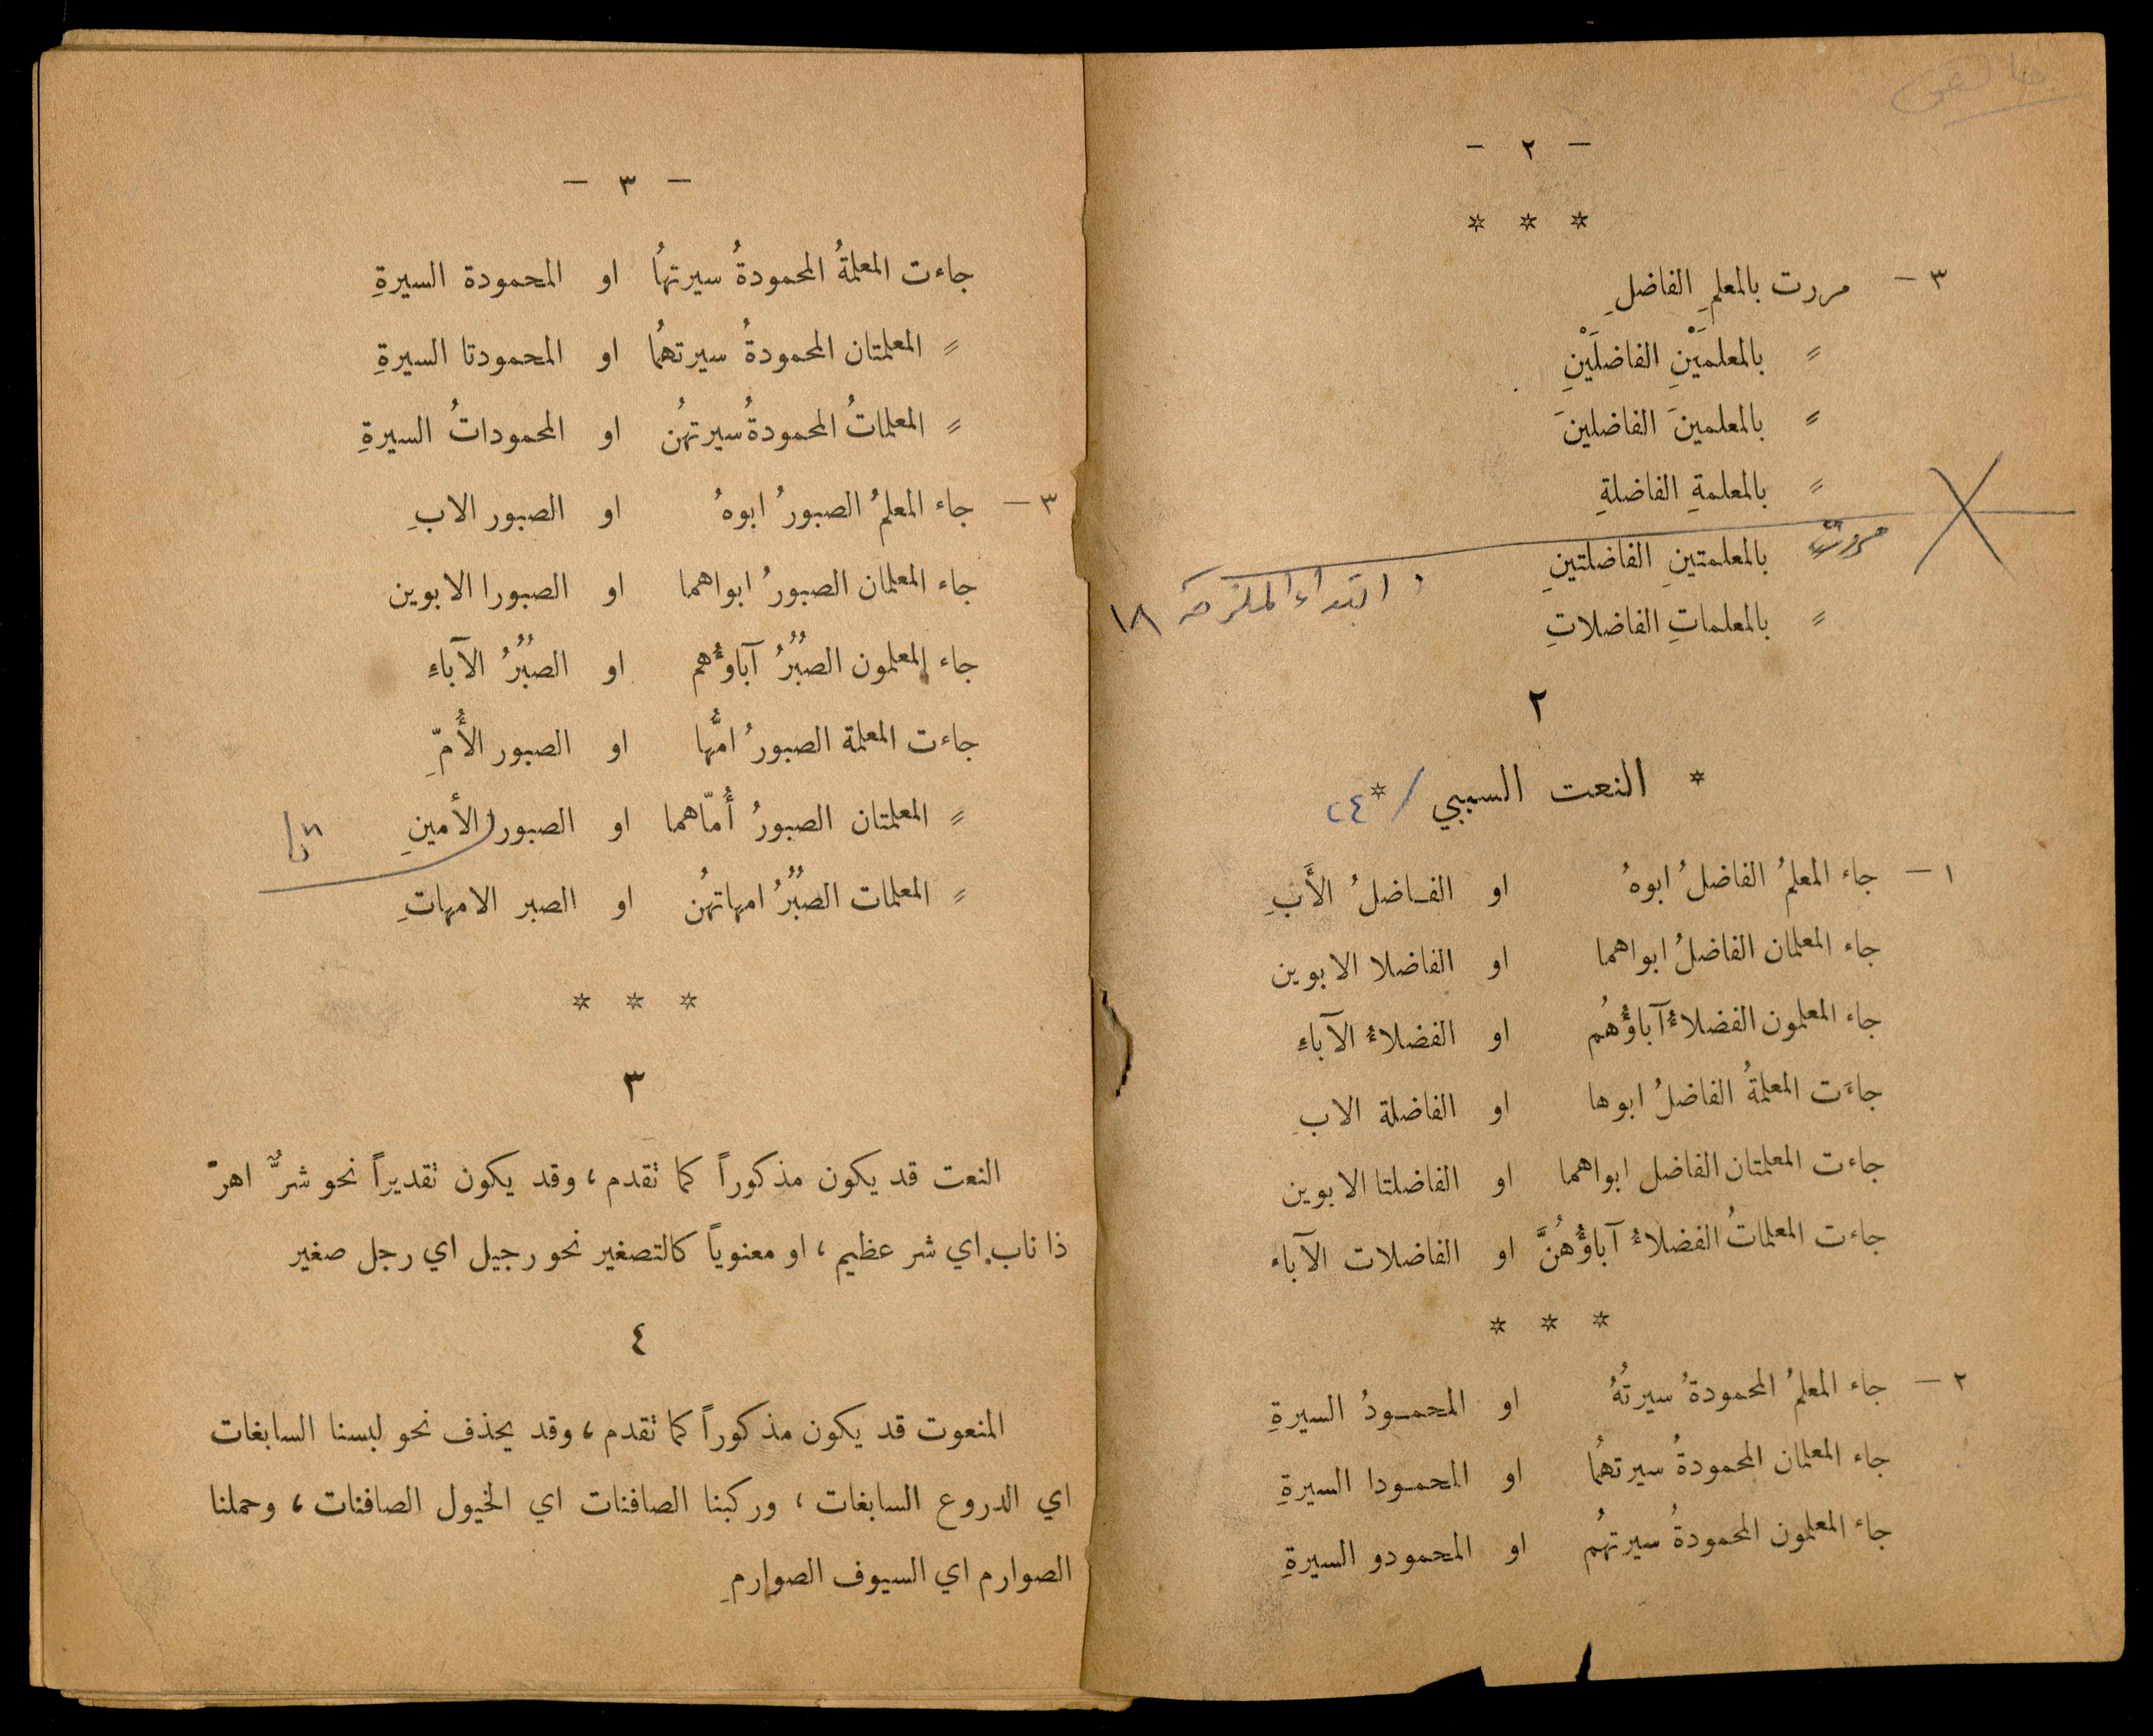 – ٢ –
* * *
٣ – مررت بالمعلمِ الفاضلِ
〃 بالمعلمَيْنِ الفاضلَيْنِ
〃 بالمعلمينَ الفاضلينَ
〃 بالمعلمةِ الفاضلةِ
مررت 〃 بالمعلمتينِ الفاضلتينِ
ابتداء الملزمة ١٨
〃 بالمعلماتِ الفاضلاتِ
٢
* النعت السببي * / ٢٤
١ – جاء المعلمُ الفاضلُ ابوهُ او الفاضلُ الأَبِ
جاء المعلمان الفاضلُ ابواهما او الفاضلا الابوين
جاء المعلمون الفضلاءُ آباؤُهُم او الفضلاءُ الآباءِ
جاءَت المعلمةُ الفاضلُ ابوها او الفاضلة الابِ
جاءت المعلمتان الفاضل ابواهما او الفاضلتا الابوين
جاءت المعلماتُ الفضلاءُ آباؤُهُنَّ او الفاضلات الآباء
* * *
٢ – جاء المعلمُ المحمودةُ سيرتُهُ او المحمودُ السيرةِ
جاء المعلمان المحمودةُ سيرتهُما او المحمودا السيرةِ
جاء المعلمون المحمودةُ سيرتهُم او المحمودو السيرةِ
– ٣ –
جاءت المعلمةُ المحمودةُ سيرتهاُ او المحمودة السيرةِ
〃 المعلمتان المحمودةُ سيرتهُما او المحمودتا السيرةِ
〃 المعلماتُ المحمودةُ سيرتهُن او المحموداتُ السيرةِ
٣ – جاء المعلمُ الصبورُ ابوهُ او الصبور الابِ
جاء المعلمان الصبورُ ابواهما او الصبورا الابوين
جاء المعلمون الصُبُرُ آباوُهم او الصُبُرُ الآباءِ
جاءت المعلمة الصبورُ امُّها او الصبور الأُمِّ
〃 المعلمتان الصبورُ أُمّاهما او الصبور الأمينِ
〃 المعلمات الصُبُرُ امهاتهُن او الصبر الامهاتِ
* * *
٣
النعت قد يكون مذكوراً كما تقدم ، وقد يكون تقديراً نحو شرٌّ اهرّ
ذا ناب. اي شر عظيم ، او معنوياً كالتصغير نحو رجيل اي رجل صغير
٤
المنعوت قد يكون مذكوراً كما تقدم ، وقد يحذف نحو لبسنا السابغات
اي الدروع السابغات ، وركبنا الصافنات اي الخيول الصافنات ، وحملنا
الصوارم اي السيوف الصوارمِ